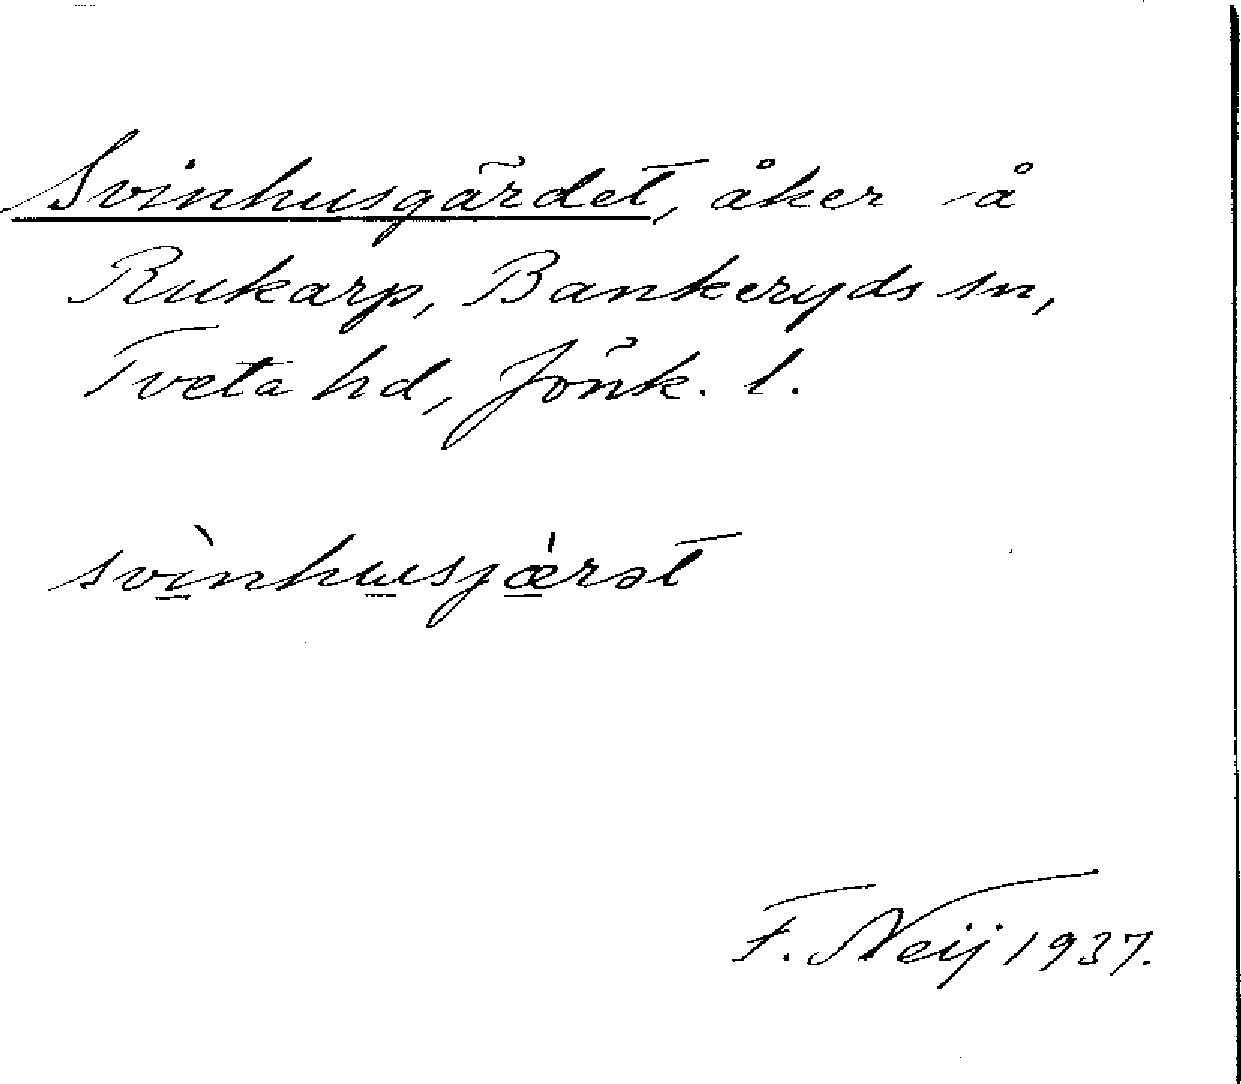 Svinhusgärdet, åker å
Rukarp, Bankeryds sn,
Tveta hd, Jönk. l.
svìnhusjǽrət
F. Neij 1937.